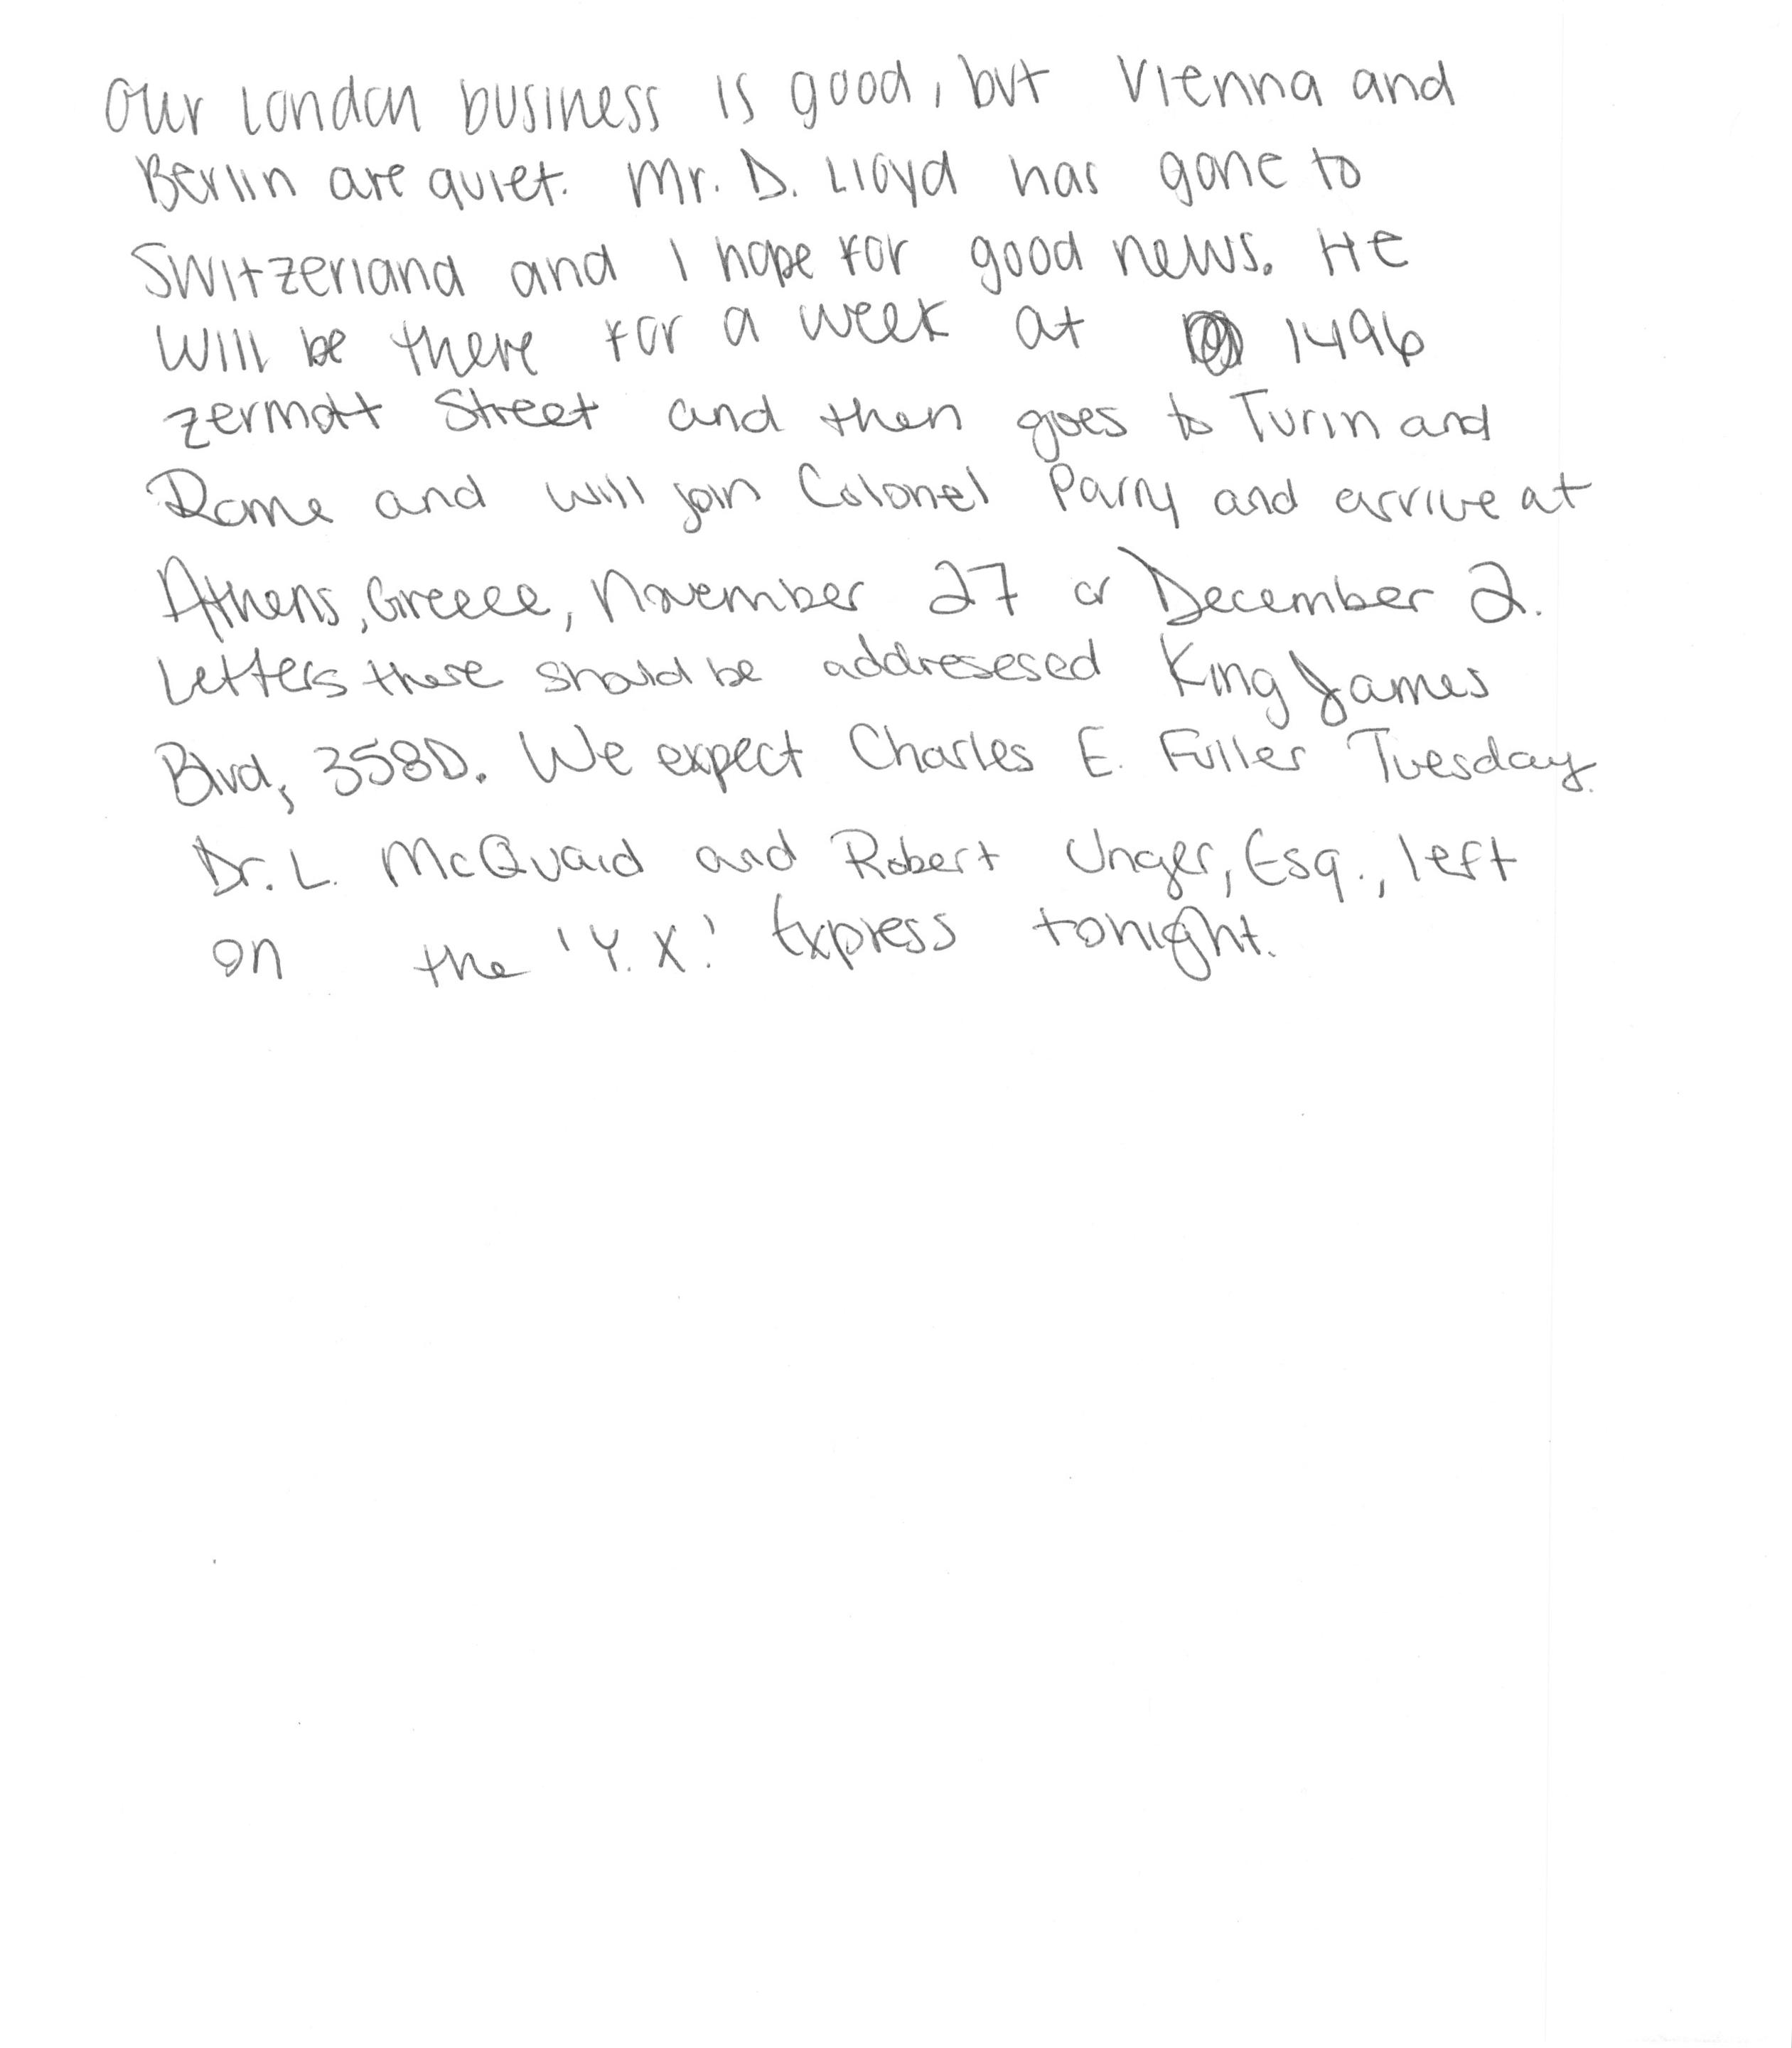 Our London business is good, but Vienna and
Berlin are quiet. Mr. D. Lloyd has gone to
Switzerland and I hope for good news. He
will be there for a week at 1496
Zermott Street and then goes to Turin and
Rome and will join Colonel Parry and arrive at
Athens, Greece, November 27 or December 2.
Letters there should be addresesed King James
Blvd, 358D. We expect Charles E. Fuller Tuesday.
Dr. L. McQuaid and Robert Unger, Esq., left
on the 'Y.X.' Express tonight.